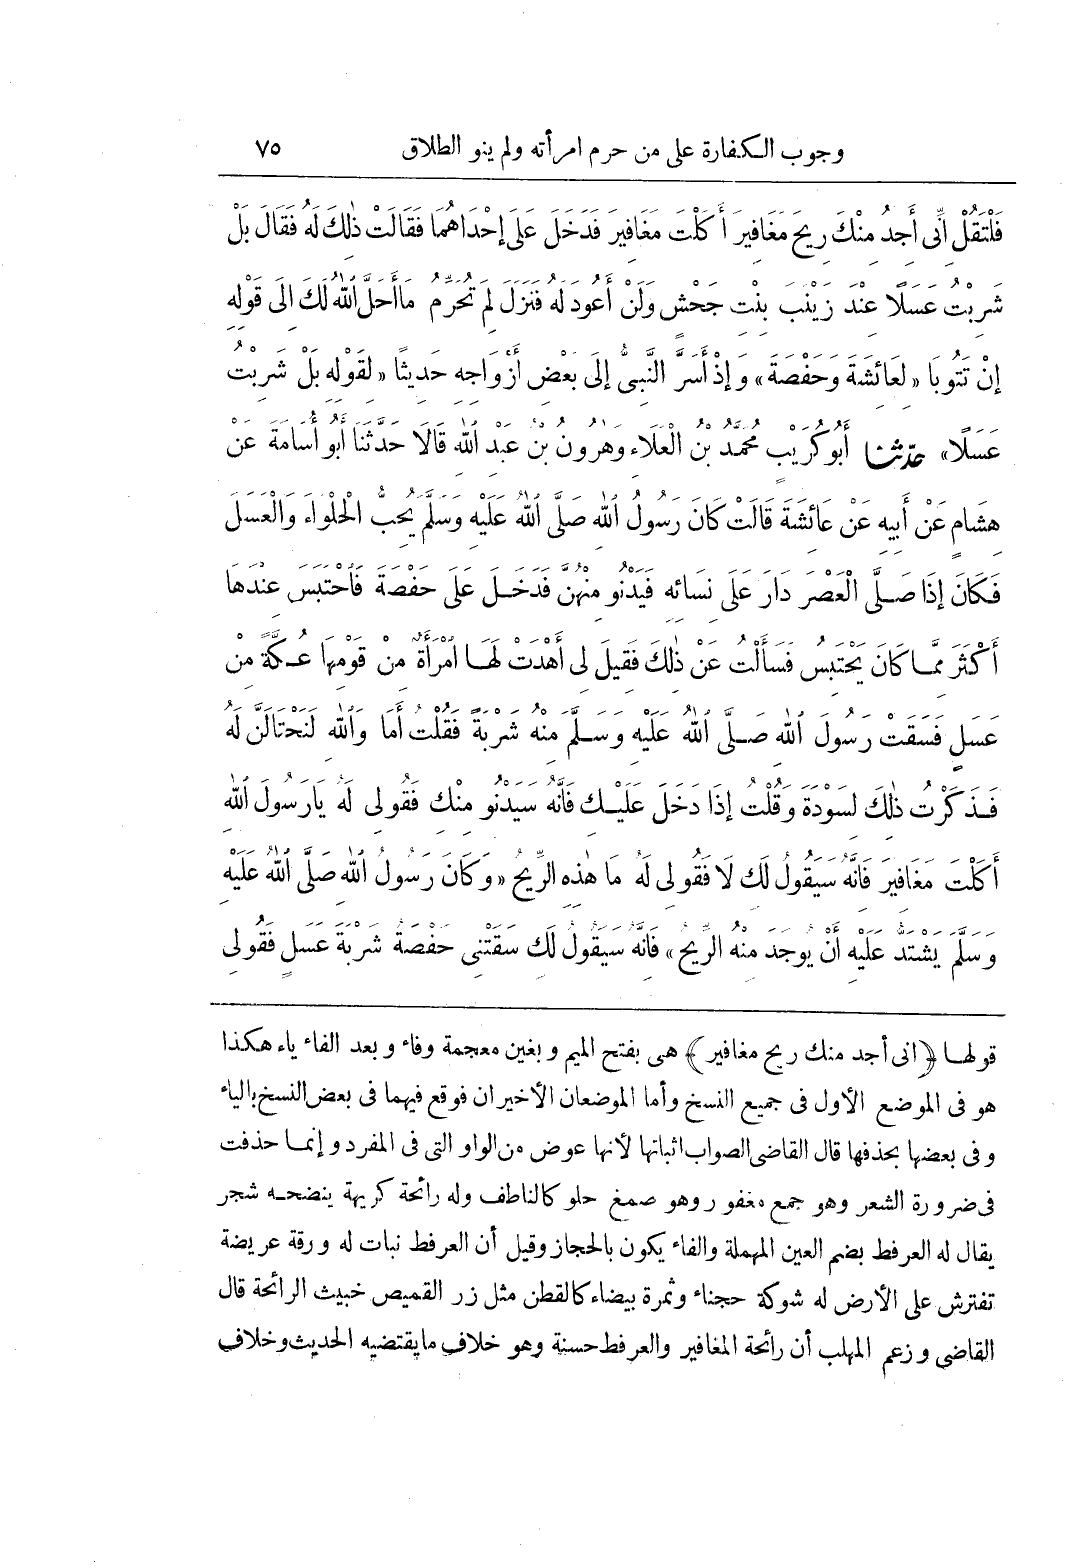 وجوب الكفارة على من حرم امرأته ولم ينو الطلاق ٧٥
فَلْتَقُلْ اِنِّى أَجِدُ مِنْكَ رِيحَ مَغَافِيرَ أَكَلْتَ مَغَافِيرَ فَدَخَلَ عَلَى إِحْدَاهُمَا فَقَالَتْ ذٰلِكَ لَهُ فَقَالَ بَلْ
شَرِبْتُ عَسَلًا عِنْدَ زَيْنَبَ بِنْتِ جَحْشٍ وَلَنْ أَعُودَ لَهُ فَنَزَلَ لِمَ تُحَرِّمُ مَا أَحَلَّ اللّٰهُ لَكَ اِلَى قَوْلِهِ
اِنْ تَتُوبَا «لِعَائِشَةَ وَحَفْصَةَ» وَإِذْ أَسَرَّ النَّبِىُّ إِلَى بَعْضِ أَزْوَاجِهِ حَدِيثًا «لِقَوْلِهِ بَلْ شَرِبْتُ
عَسَلًا» حدّثنا أَبُو كُرَيْبٍ مُحَمَّدُ بْنُ الْعَلَاءِ وَهٰرُونُ بْنُ عَبْدِ اللّٰهِ قَالَا حَدَّثَنَا أَبُو أُسَامَةَ عَنْ
هِشَامٍ عَنْ أَبِيهِ عَنْ عَائِشَةَ قَالَتْ كَانَ رَسُولُ اللّٰهِ صَلَّى اللّٰهُ عَلَيْهِ وَسَلَّمَ يُحِبُّ الْحَلْوَاءَ وَالْعَسَلَ
فَكَانَ إِذَا صَلَّى الْعَصْرَ دَارَ عَلَى نِسَائِهِ فَيَدْنُو مِنْهُنَّ فَدَخَلَ عَلَى حَفْصَةَ فَاحْتَبَسَ عِنْدَهَا
أَكْثَرَ مِمَّا كَانَ يَحْتَبِسُ فَسَأَلْتُ عَنْ ذٰلِكَ فَقِيلَ لِى أَهْدَتْ لَهَا امْرَأَةٌ مِنْ قَوْمِهَا عُكَّةً مِنْ
عَسَلٍ فَسَقَتْ رَسُولَ اللّٰهِ صَلَّى اللّٰهُ عَلَيْهِ وَسَلَّمَ مِنْهُ شَرْبَةً فَقُلْتُ أَمَا وَاللّٰهِ لَنَحْتَالَنَّ لَهُ
فَذَكَرْتُ ذٰلِكَ لِسَوْدَةَ وَقُلْتُ إِذَا دَخَلَ عَلَيْكِ فَانَّهُ سَيَدْنُو مِنْكِ فَقُولِى لَهُ يَارَسُولَ اللّٰهِ
أَكَلْتَ مَغَافِيرَ فَانَّهُ سَيَقُولُ لَكِ لَا فَقُولِى لَهُ مَا هٰذِهِ الرِّيحُ «وَكَانَ رَسُولُ اللّٰهِ صَلَّى اللّٰهُ عَلَيْهِ
وَسَلَّمَ يَشْتَدُّ عَلَيْهِ أَنْ يُوجَدَ مِنْهُ الرِّيحُ» فَانَّهُ سَيَقُولُ لَكِ سَقَتْنِى حَفْصَةُ شَرْبَةَ عَسَلٍ فَقُولِى
قولها ﴿انى أجد منك ريح مغافير﴾ هى بفتح الميم وبغين معجمة وفاء وبعد الفاء ياء هكذا
هو فى الموضع الأول فى جميع النسخ وأما الموضعان الأخيران فوقع فيهما فى بعض النسخ بالياء
وفى بعضها بحذفها قال القاضى الصواب اثباتها لأنها عوض من الواو التى فى المفرد وإنما حذفت
فى ضرورة الشعر وهو جمع مغفور وهو صمغ حلو كالناطف وله رائحة كريهة ينضحه شجر
يقال له العرفط بضم العين المهملة والفاء يكون بالحجاز وقيل أن العرفط نبات له ورقة عريضة
تفترش على الأرض له شوكة حجناء وثمرة بيضاء كالقطن مثل زر القميص خبيث الرائحة قال
القاضى وزعم المهلب أن رائحة المغافير والعرفط حسنة وهو خلاف ما يقتضيه الحديث وخلاف